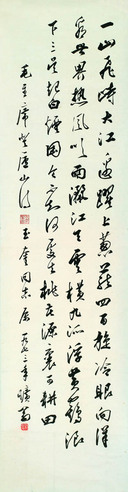 一山飞峙大江边跃上葱茏四百旋冷眼向洋
看世界热风吹雨洒江天云横九派浮黄鹤浪
下三吴起白烟陶令不知何处去桃花源里可耕田
毛主席登庐山诗
玉奎同志属
一九七三年